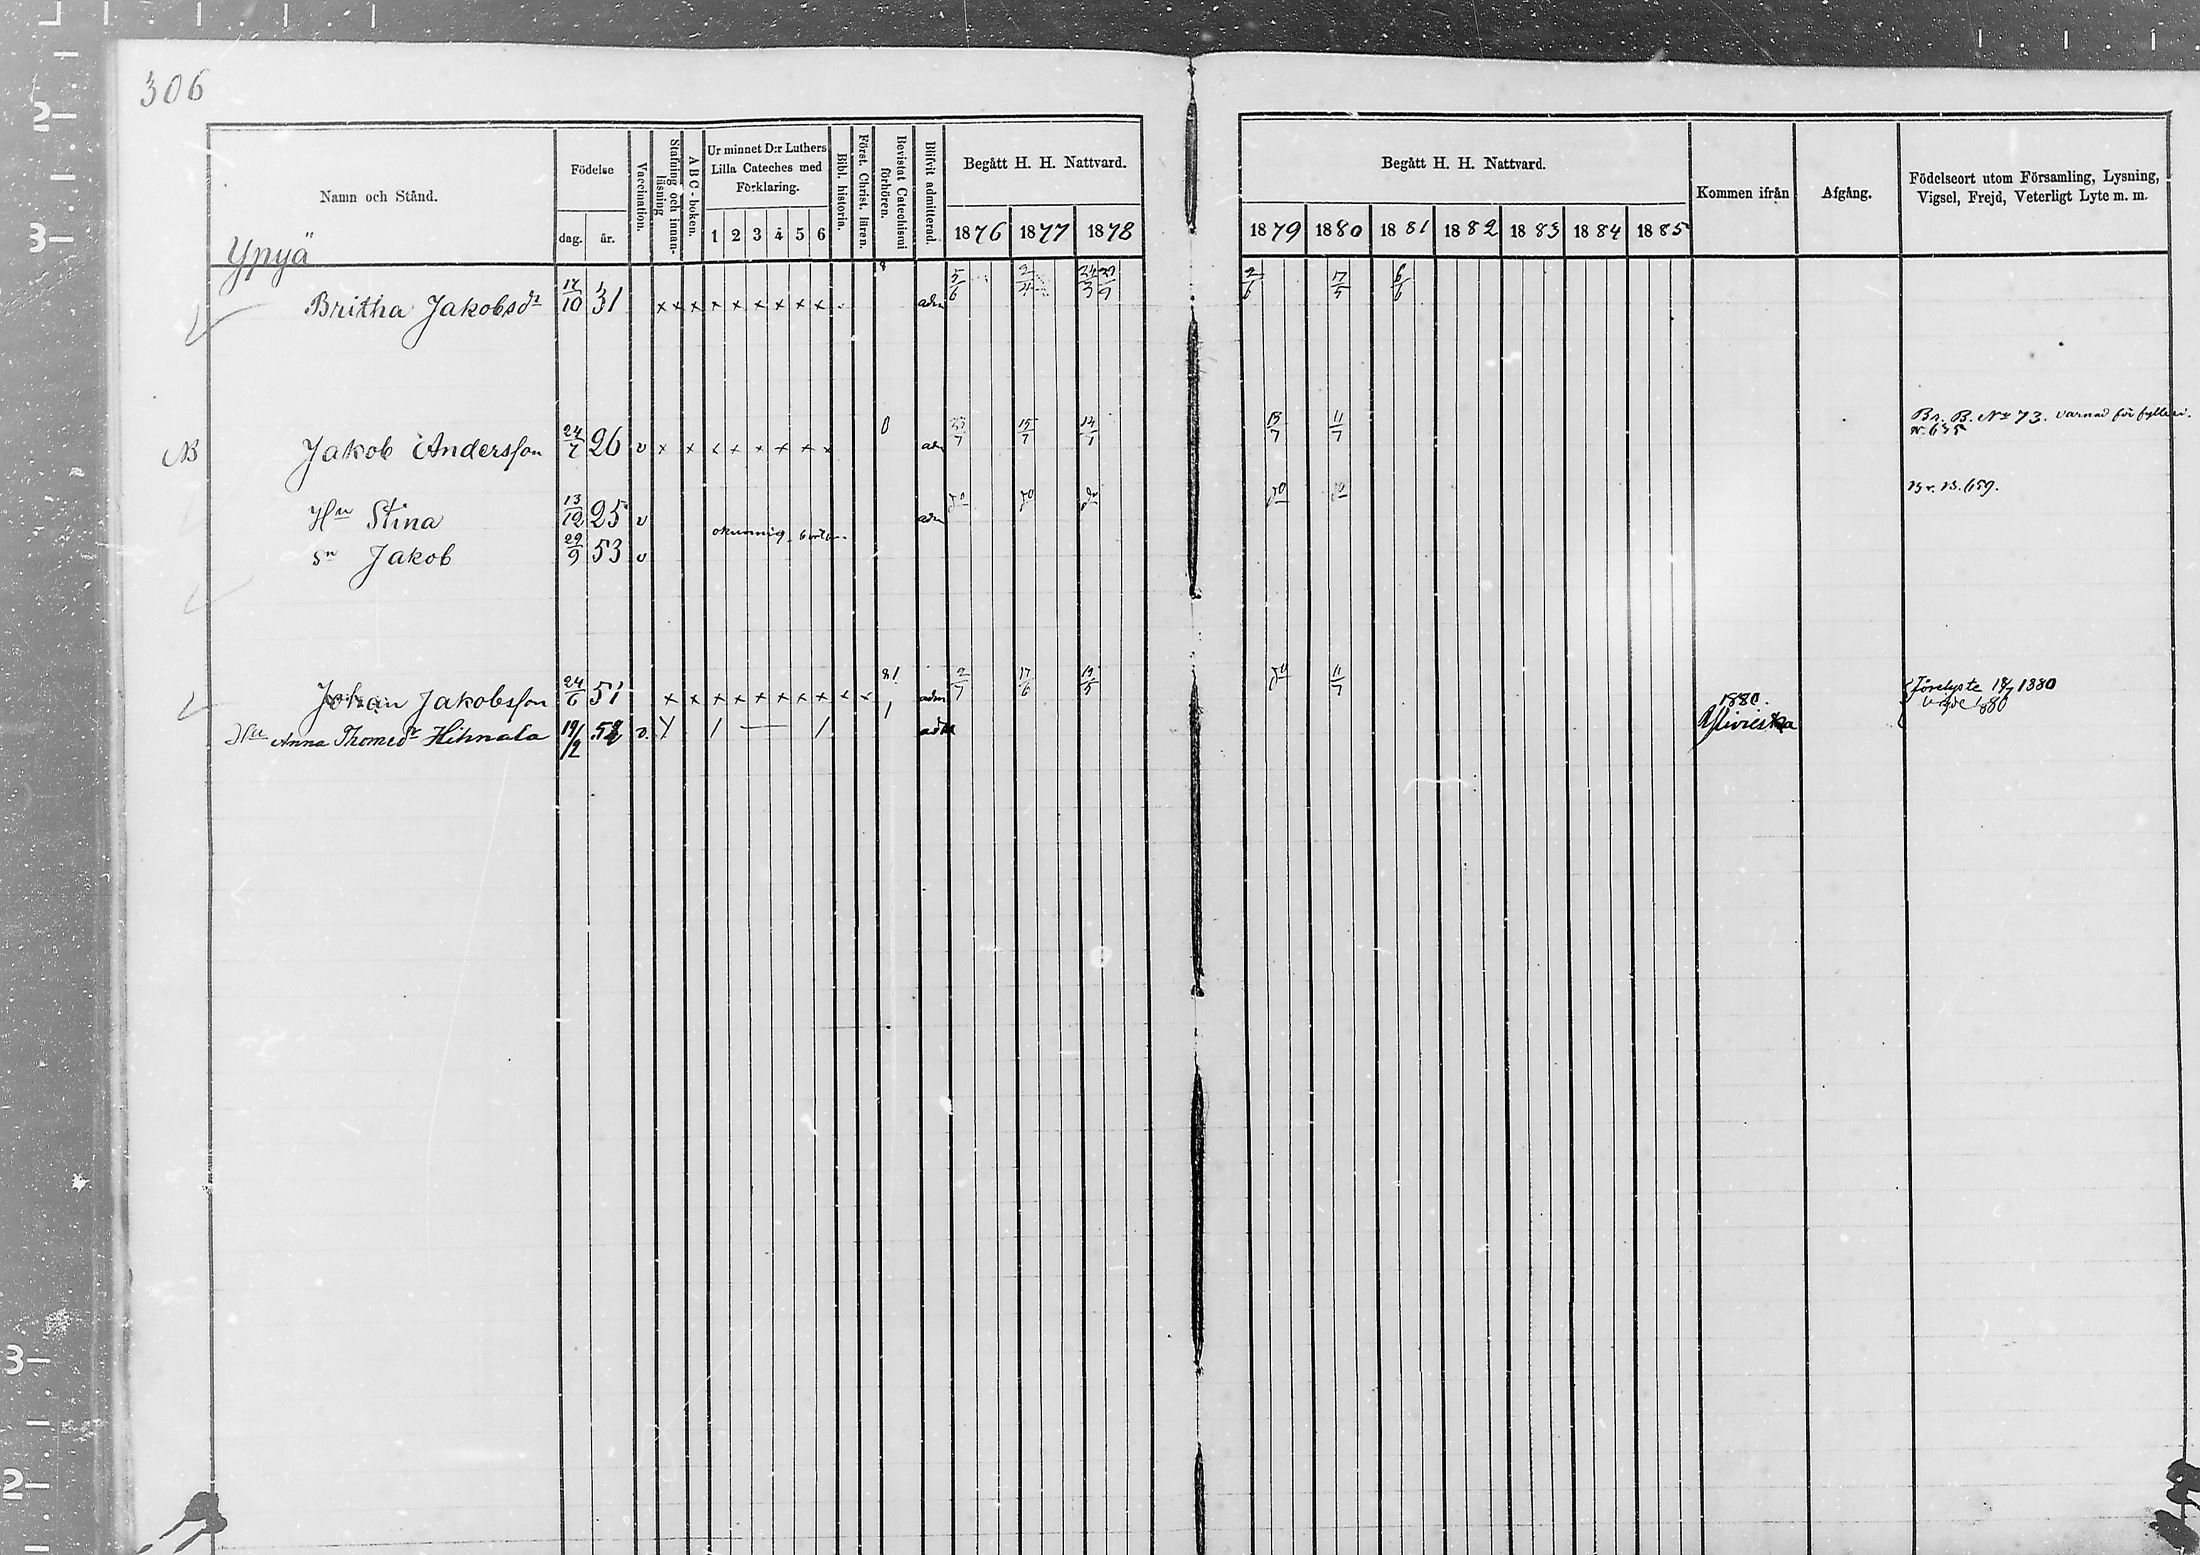 306
Namn och Stånd.
Födelse
dag.
år.
Vaccination.
Stafning och innan-
läsning
ABC-boken.
Ur minnet D:r Luthers
Lilla Cateches med
Förklaring.
1 2 3 4 5 6
Bibl. historia.
Först. Christ. lären.
Bevistat Catechismi
förhören.
Blifvit admitterad.
Begått H. H. Nattvard.
1876 1877 1878
Begått H. H. Nattvard.
1879 1880 1881 1882 1883 1884 1885
Kommen ifrån
Afgång.
Födelseort utom Församling, Lysning,
Vigsel, Frejd, Veterligt Lyte m. m.
Ypyä
Britha Jakobsdr 17/10 31 x x x x x x x x x adm 5/6 2/6 17/5 6/6
NB Jakob Andersson 24/7 26 v x x x x x x x x 0 adm 15/7 14/7 13/7 11/7 Br. B. No 73. varnad för fylleri.
Hu Stina 13/12 25 v adm do do do do do Br. B. 659.
okunnig
sn Jakob 29/9 53 v
Johan Jakobsson 24/6 51 x x x x x x x x x x adm 2/7 17/6 19/5 do 11/7 Förelyste 18/7 1880
Hu Anna Thomedr Hihnala 19/2 52 v. adm 1880. Ylivieska